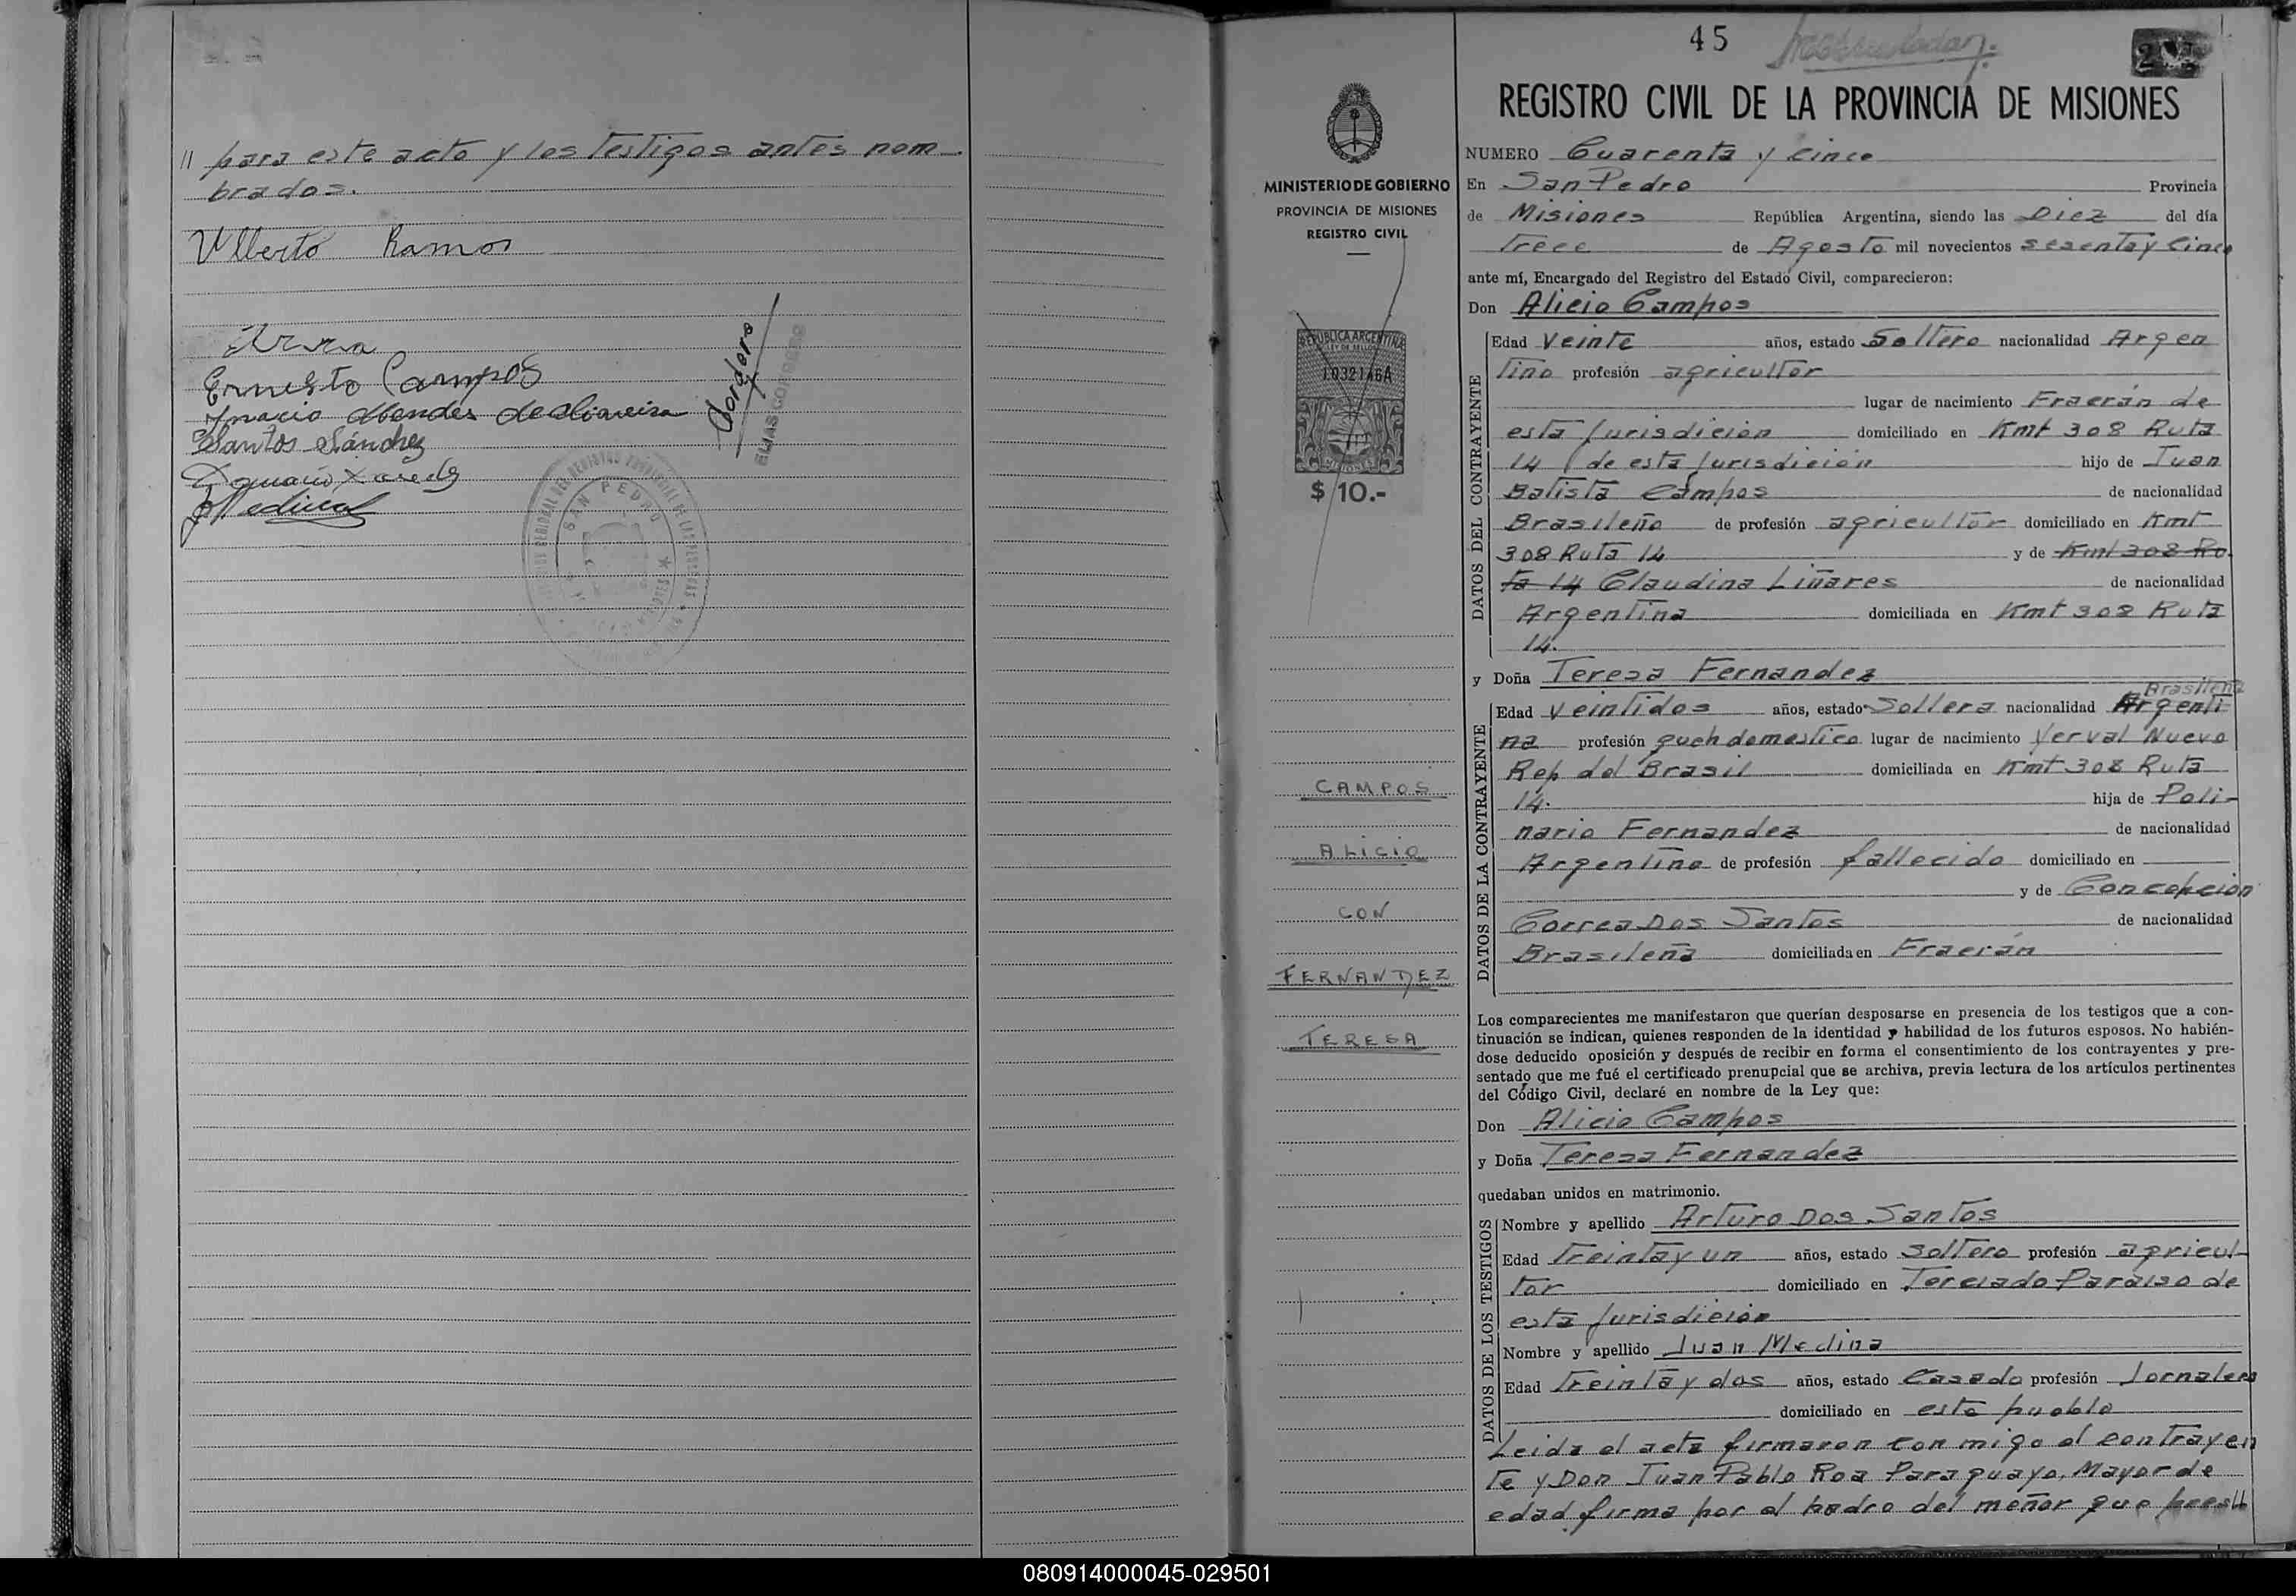 // para este acto y los testigos antes nom-
brados.
Ulberto Ramos
Ernesto Campos
Santos Sánchez
Cordero
ELIAS CORDERO
SAN PEDRO
45
REGISTRO CIVIL DE LA PROVINCIA DE MISIONES
MINISTERIO DE GOBIERNO
PROVINCIA DE MISIONES
REGISTRO CIVIL
REPUBLICA ARGENTINA
LEY DE SELLOS
1032146A
MISIONES
$ 10.-
CAMPOS
ALICIO
CON
FERNANDEZ
TERESA
NUMERO Cuarenta y Cinco
En San Pedro Provincia
de Misiones República Argentina, siendo las Diez del día
Trece de Agosto mil novecientos sesenta y Cinco
ante mí, Encargado del Registro del Estado Civil, comparecieron:
Don Alicio Campos
DATOS DEL CONTRAYENTE
Edad Veinte años, estado Soltero nacionalidad Argen
tino profesión agricultor
lugar de nacimiento Fracrán de
esta Jurisdición domiciliado en Kmt 308 Ruta
14 de esta Jurisdición hijo de Juan
Batista Campos de nacionalidad
Brasileño de profesión agricultor domiciliado en Kmt
308 Ruta 14 y de Kmt 308 Ru
ta 14 Claudina Liñares de nacionalidad
Argentina domiciliada en Kmt 308 Ruta
14.
y Doña Teresa Fernandez
DATOS DE LA CONTRAYENTE
Brasileña
Edad Veintidos años, estado Soltera nacionalidad Argenti
na profesión queh domestico lugar de nacimiento Yerval Nuevo
Rep del Brasil domiciliada en Kmt 308 Ruta
14. hija de Poli-
nario Fernandez de nacionalidad
Argentino de profesión fallecido domiciliado en
y de Concepcion
Correa Dos Santos de nacionalidad
Brasileña domiciliada en Fracrán
Los comparecientes me manifestaron que querían desposarse en presencia de los testigos que a con-
tinuación se indican, quienes responden de la identidad y habilidad de los futuros esposos. No habién-
dose deducido oposición y después de recibir en forma el consentimiento de los contrayentes y pre-
sentado que me fué el certificado prenupcial que se archiva, previa lectura de los artículos pertinentes
del Código Civil, declaré en nombre de la Ley que:
Don Alicio Campos
y Doña Teresa Fernandez
quedaban unidos en matrimonio.
DATOS DE LOS TESTIGOS
Nombre y apellido Arturo Dos Santos
Edad Treinta y un años, estado Soltero profesión agricul-
tor domiciliado en Terciado Paraiso de
esta Jurisdición
Nombre y apellido Juan Medina
Edad Treinta y dos años, estado Casado profesión Jornalero
domiciliado en este pueblo
Leida el acta firmaron con migo el contrayen
te y Don Juan Pablo Roa Paraguayo, Mayor de
edad firma por el padre del meñor que
080914000045-029501